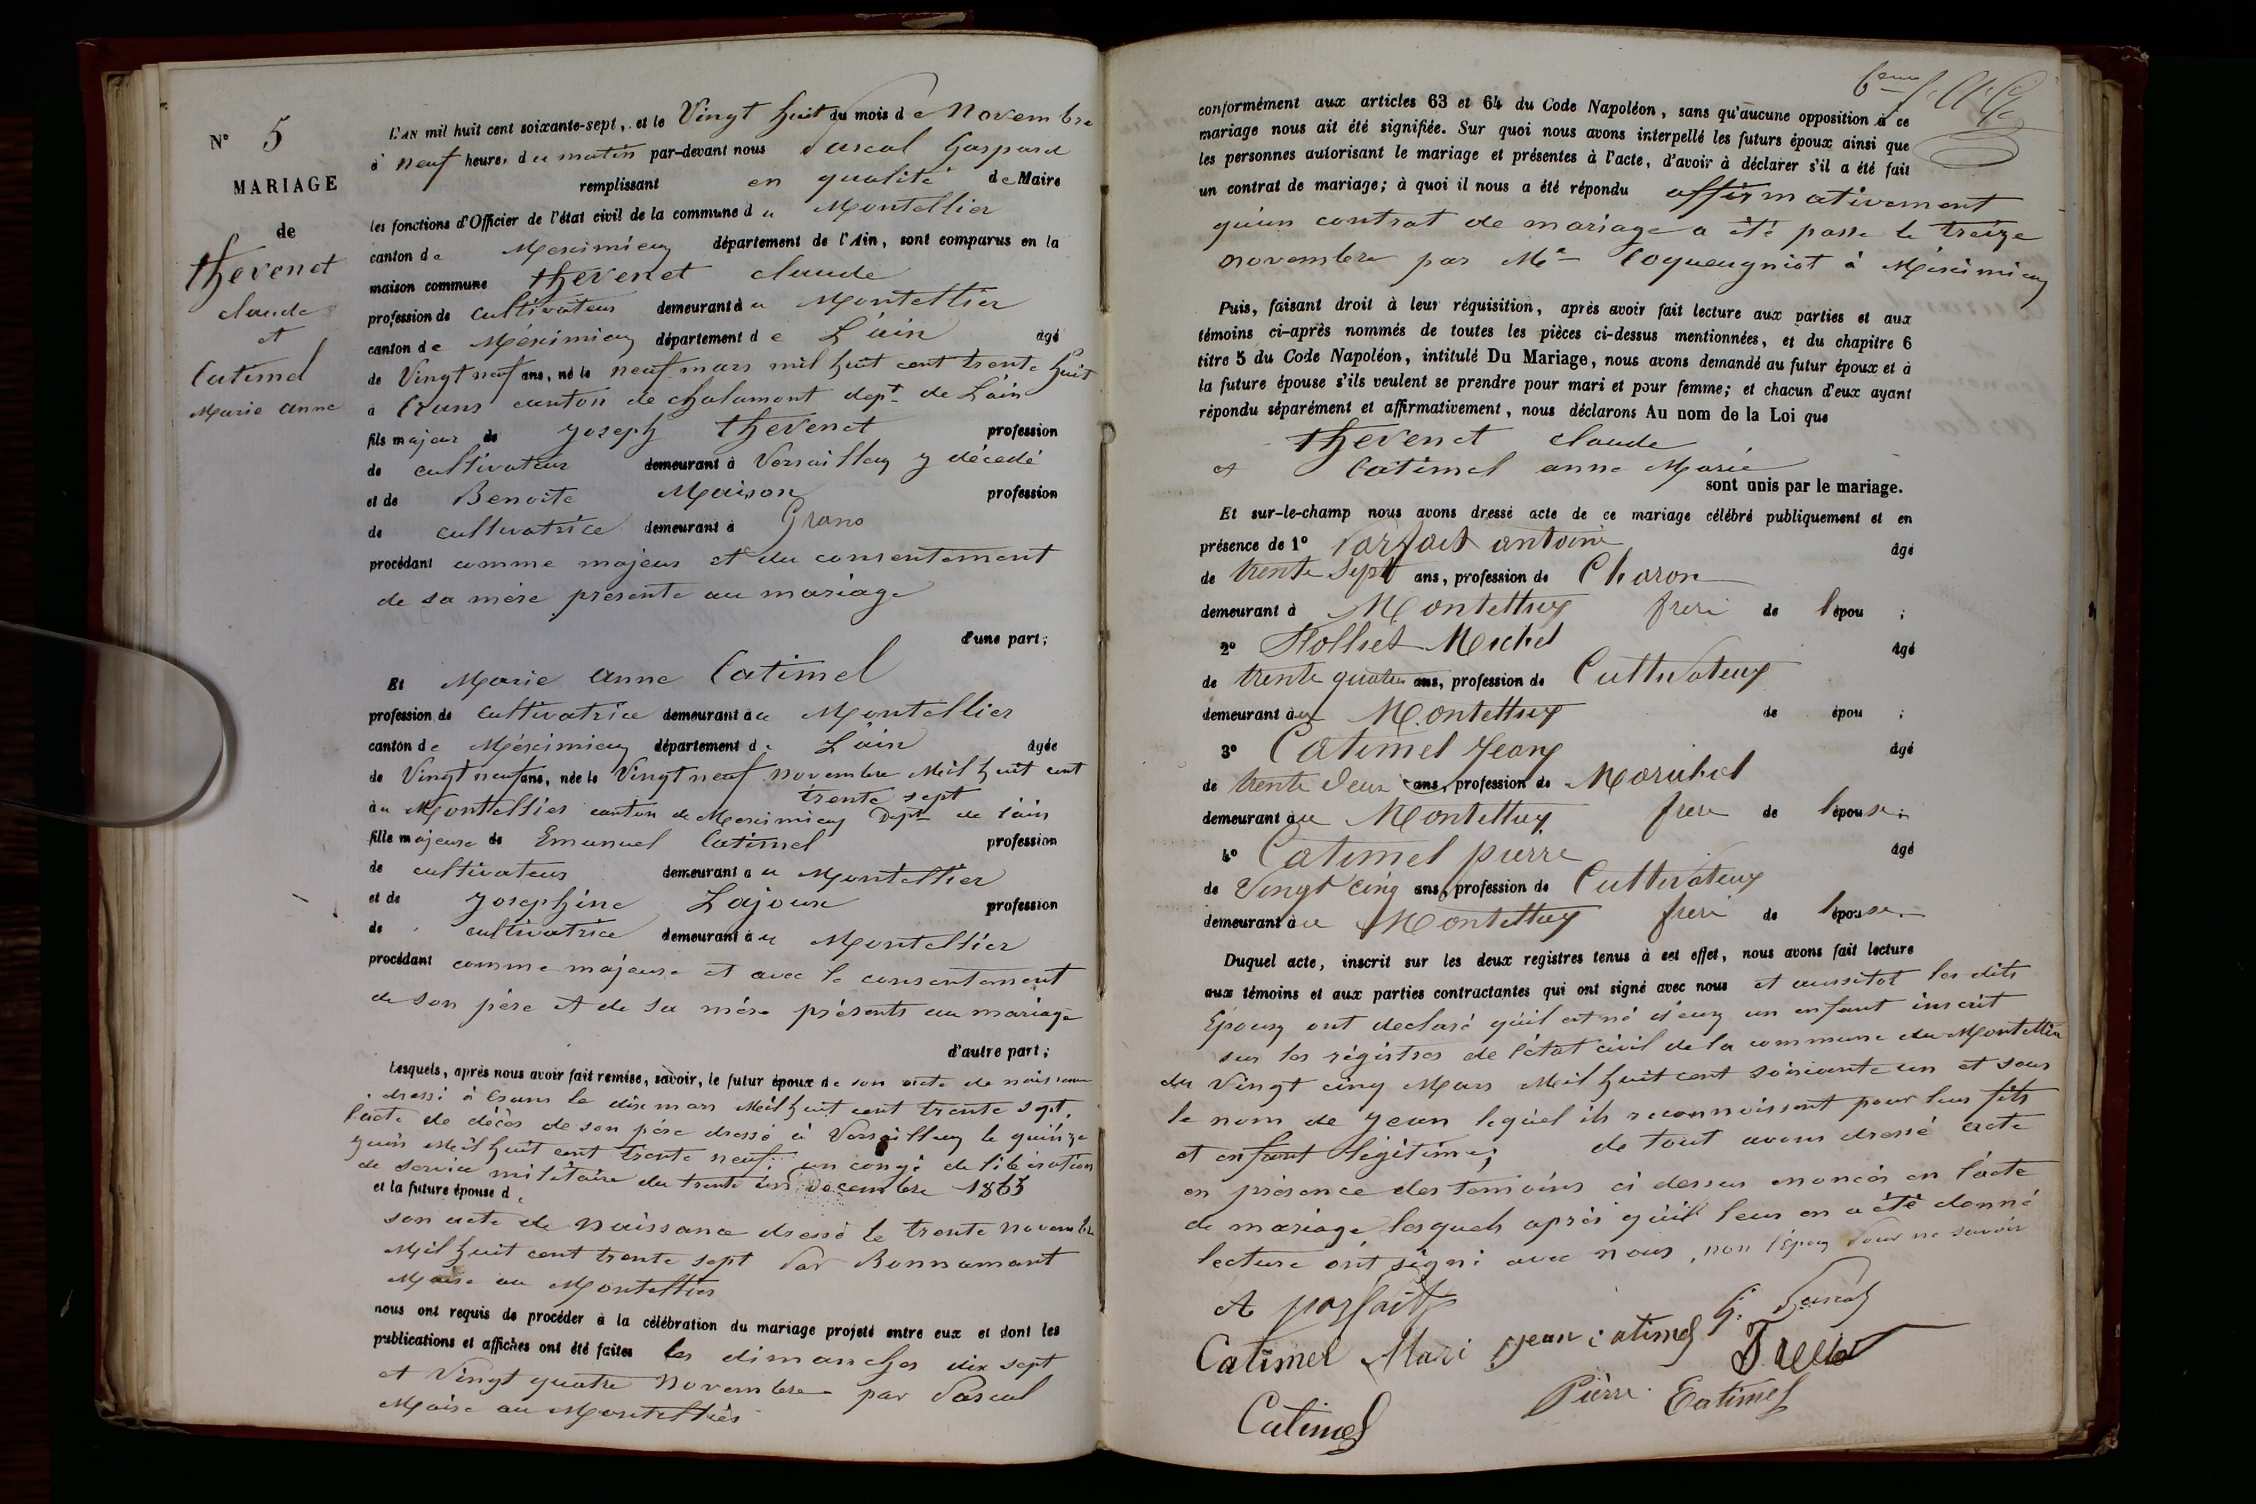 N° 5
MARIAGE
de
Thevenet
claude
et
Catimel
Marie anne
L'AN mil huit cent soixante-sept, et le Vingt huit du mois de Novembre
à neuf heures du matin par-devant nous Pascal Gaspard
remplissant en qualité de Maire
les fonctions d'Officier de l'état civil de la commune du Montellier
canton de Meximieux département de l'Ain, sont comparus en la
maison commune Thevenet claude
profession de cultivateur demeurant au Montellier
canton de Méximieux département de L'ain âgé
de Vingt neuf ans, né le neuf mars mil huit cent trente huit
à Crans canton de chalamont dept de L'ain
fils majeur de Joseph Thevenet profession
de cultivateur demeurant à Versailleux y décedé
et de Benoite Maison profession
de cultivatrice demeurant à Crans
procédant comme majeur et du consentement
de sa mère présente au mariage
d'une part;
Et Marie anne Catimel
profession de cultivatrice demeurant au Montellier
canton de Méximieux département de L'ain âgée
de Vingt neuf ans, née le Vingt neuf novembre Mil huit cent
trente sept
au Montellier canton de Meximieux Dept de l'ain
fille majeure de Emanuel Catimel profession
de cultivateur demeurant au Montellier
et de Josephine Lajoux profession
de cultivatrice demeurant au Montellier
procédant comme majeure et avec le consentement
de son père et de sa mère présents au mariage
d'autre part;
Lesquels, après nous avoir fait remise, savoir, le futur époux de son acte de naissance
dressé à Crans le dix mars Mil huit cent trente sept,
l'acte de décès de son père dressé à Versailleux le quinze
juin Mil huit cent trente neuf; un congé de libération
de service militaire du trente un Decembre 1865
et la future épouse de
son acte de Naissance dressé le trente novembre
Mil huit cent trente sept par Bonnamant
Maire au Montellier
nous ont requis de procéder à la célébration du mariage projeté entre eux et dont les
publications et affiches ont été faites les dimanches dix sept
et Vingt quatre Novembre par Pascal
Maire au Montelliér
6eme
conformément aux articles 63 et 64 du Code Napoléon, sans qu'aucune opposition à ce
mariage nous ait été signifiée. Sur quoi nous avons interpellé les futurs époux ainsi que
les personnes autorisant le mariage et présentes à l'acte, d'avoir à déclarer s'il a été fait
un contrat de mariage; à quoi il nous a été répondu affirmativement
qu'un contrat de mariage a été passé le treize
novembre par Me Coqueugniot à Méximieux
Puis, faisant droit à leur réquisition, après avoir fait lecture aux parties et aux
témoins ci-après nommés de toutes les pièces ci-dessus mentionnées, et du chapitre 6
titre 5 du Code Napoléon, intitulé Du Mariage, nous avons demandé au futur époux et à
la future épouse s'ils veulent se prendre pour mari et pour femme; et chacun d'eux ayant
répondu séparément et affirmativement, nous déclarons Au nom de la Loi que
Thevenet claude
et Catimel anne Marie
sont unis par le mariage.
Et sur-le-champ nous avons dressé acte de ce mariage célébré publiquement et en
présence de 1° Parfait antoine âgé
de trente sept ans, profession de Charon
demeurant à Montelluy frere de l'épou ;
2° Michel âgé
de trente quatre ans, profession de Cultivateur
demeurant au Montelluy de épou ;
3° Catimel Jean âgé
de trente deux ans, profession de Marichal
demeurant au Montelluy frere de l'épouse;
4° Catimel pierre âgé
de Vingt cinq ans, profession de Cultivateur
demeurant au Montelluy frere de l'épouse.
Duquel acte, inscrit sur les deux registres tenus à cet effet, nous avons fait lecture
aux témoins et aux parties contractantes qui ont signé avec nous et aussitot les dits
Epoux ont declaré qu'il est né d'eux un enfant inscrit
sur les régistres de l'état civil de la commune du Montellier
du Vingt cinq Mars Mil huit cent soixante un et sous
le nom de Jean lequel ils reconnoissent pour leur fils
et enfant légitime; de tout avons dressé acte
en présence des temoins ci dessus enoncés en l'acte
de mariage lesquels après qu'il leur en a été donné
lecture ont signé avec nous, non l'époux pour ne savoir
A parfait
G. Pascal
Catimel Mari jean catimel
Catimel
Pierre Catimel